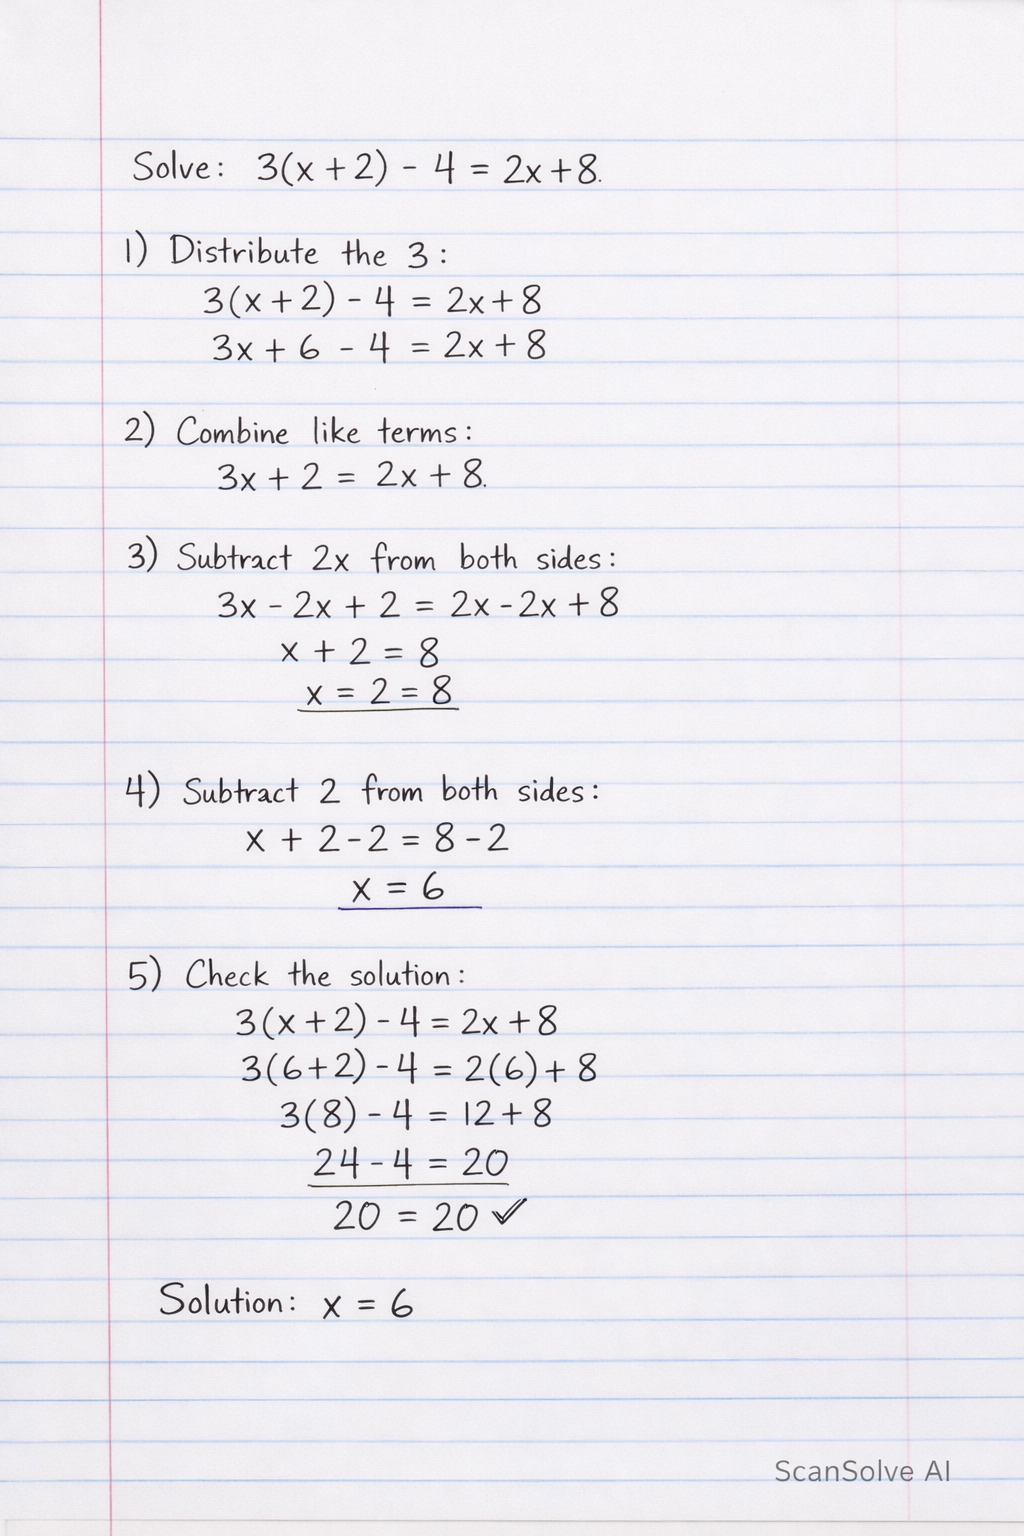 Solve: 3(x + 2) - 4 = 2x + 8.
1) Distribute the 3:
3(x + 2) - 4 = 2x + 8
3x + 6 - 4 = 2x + 8
2) Combine like terms:
3x + 2 = 2x + 8.
3) Subtract 2x from both sides:
3x - 2x + 2 = 2x - 2x + 8
x + 2 = 8
x = 2 = 8
4) Subtract 2 from both sides:
x + 2 - 2 = 8 - 2
x = 6
5) Check the solution:
3(x + 2) - 4 = 2x + 8
3(6 + 2) - 4 = 2(6) + 8
3(8) - 4 = 12 + 8
24 - 4 = 20
20 = 20 ✓
Solution: x = 6
ScanSolve AI